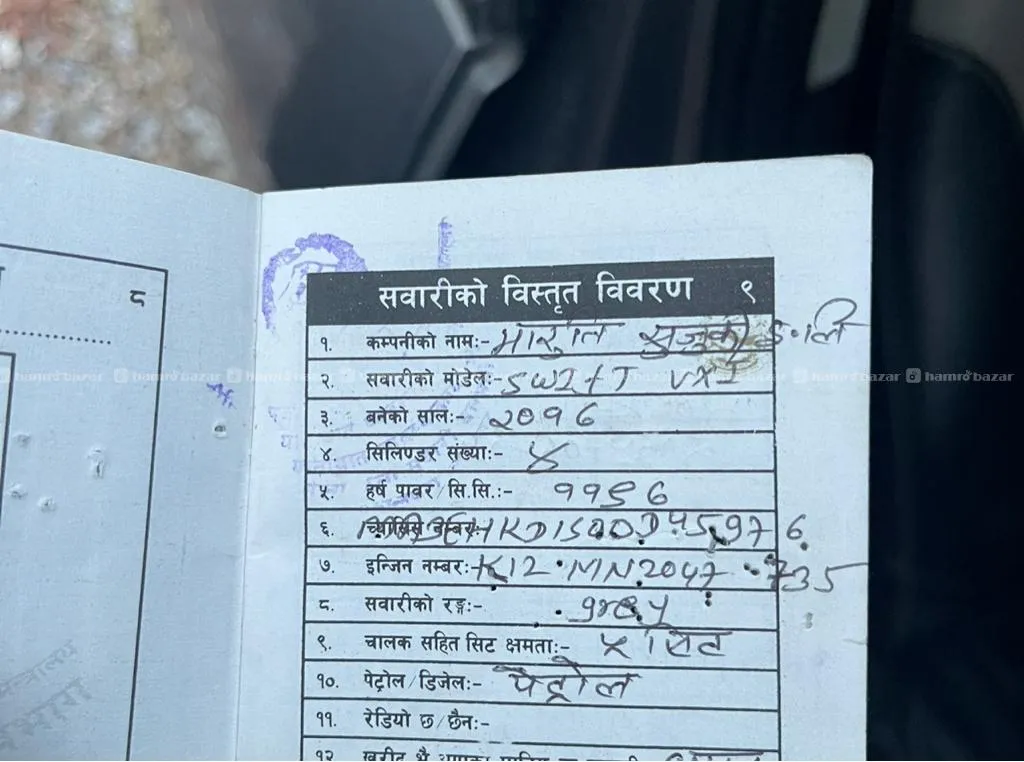 ८
सवारीको विस्तृत विवरण ९
१. कम्पनीको नामः- मारुति सुजुकी इ.लि
२. सवारीको मोडेलः- SWIFT VXI
३. बनेको सालः- २०१६
४. सिलिण्डर संख्याः- ४
५. हर्ष पावर/सि.सि.ः- ११९६
६. च्यासिस नम्बरः-
७. इन्जिन नम्बरः- K12 MN2047735
८. सवारीको रङ्गः- grey
९. चालक सहित सिट क्षमताः- ५ सिट
१०. पेट्रोल/डिजेलः- पेट्रोल
११. रेडियो छ/छैनः-
१२.
hamrobazar hamrobazar hamrobazar